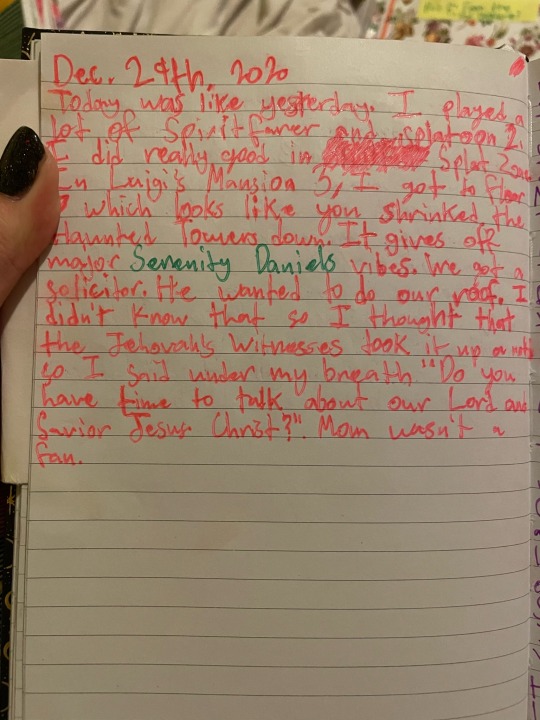 Dec. 29th, 2020
Today was like yesterday. I played a
lot of Spiritfarer and splatoon 2.
I did really good in Splat Zones
In Luigi's Mansion 3, I got to floor
which looks like you shrinked the
Haunted Towers down. It gives off
major Serenity Daniels vibes. We got a
solicitor. He wanted to do our roof. I
didn't know that so I thought that
the Jehovah's Witnesses took it up a notch
so I said under my breath "Do you
have time to talk about our Lord and
Savior Jesus Christ?". Mom wasn't a
fan.